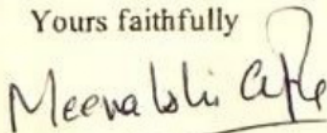 Yours faithfully
Meenakshi